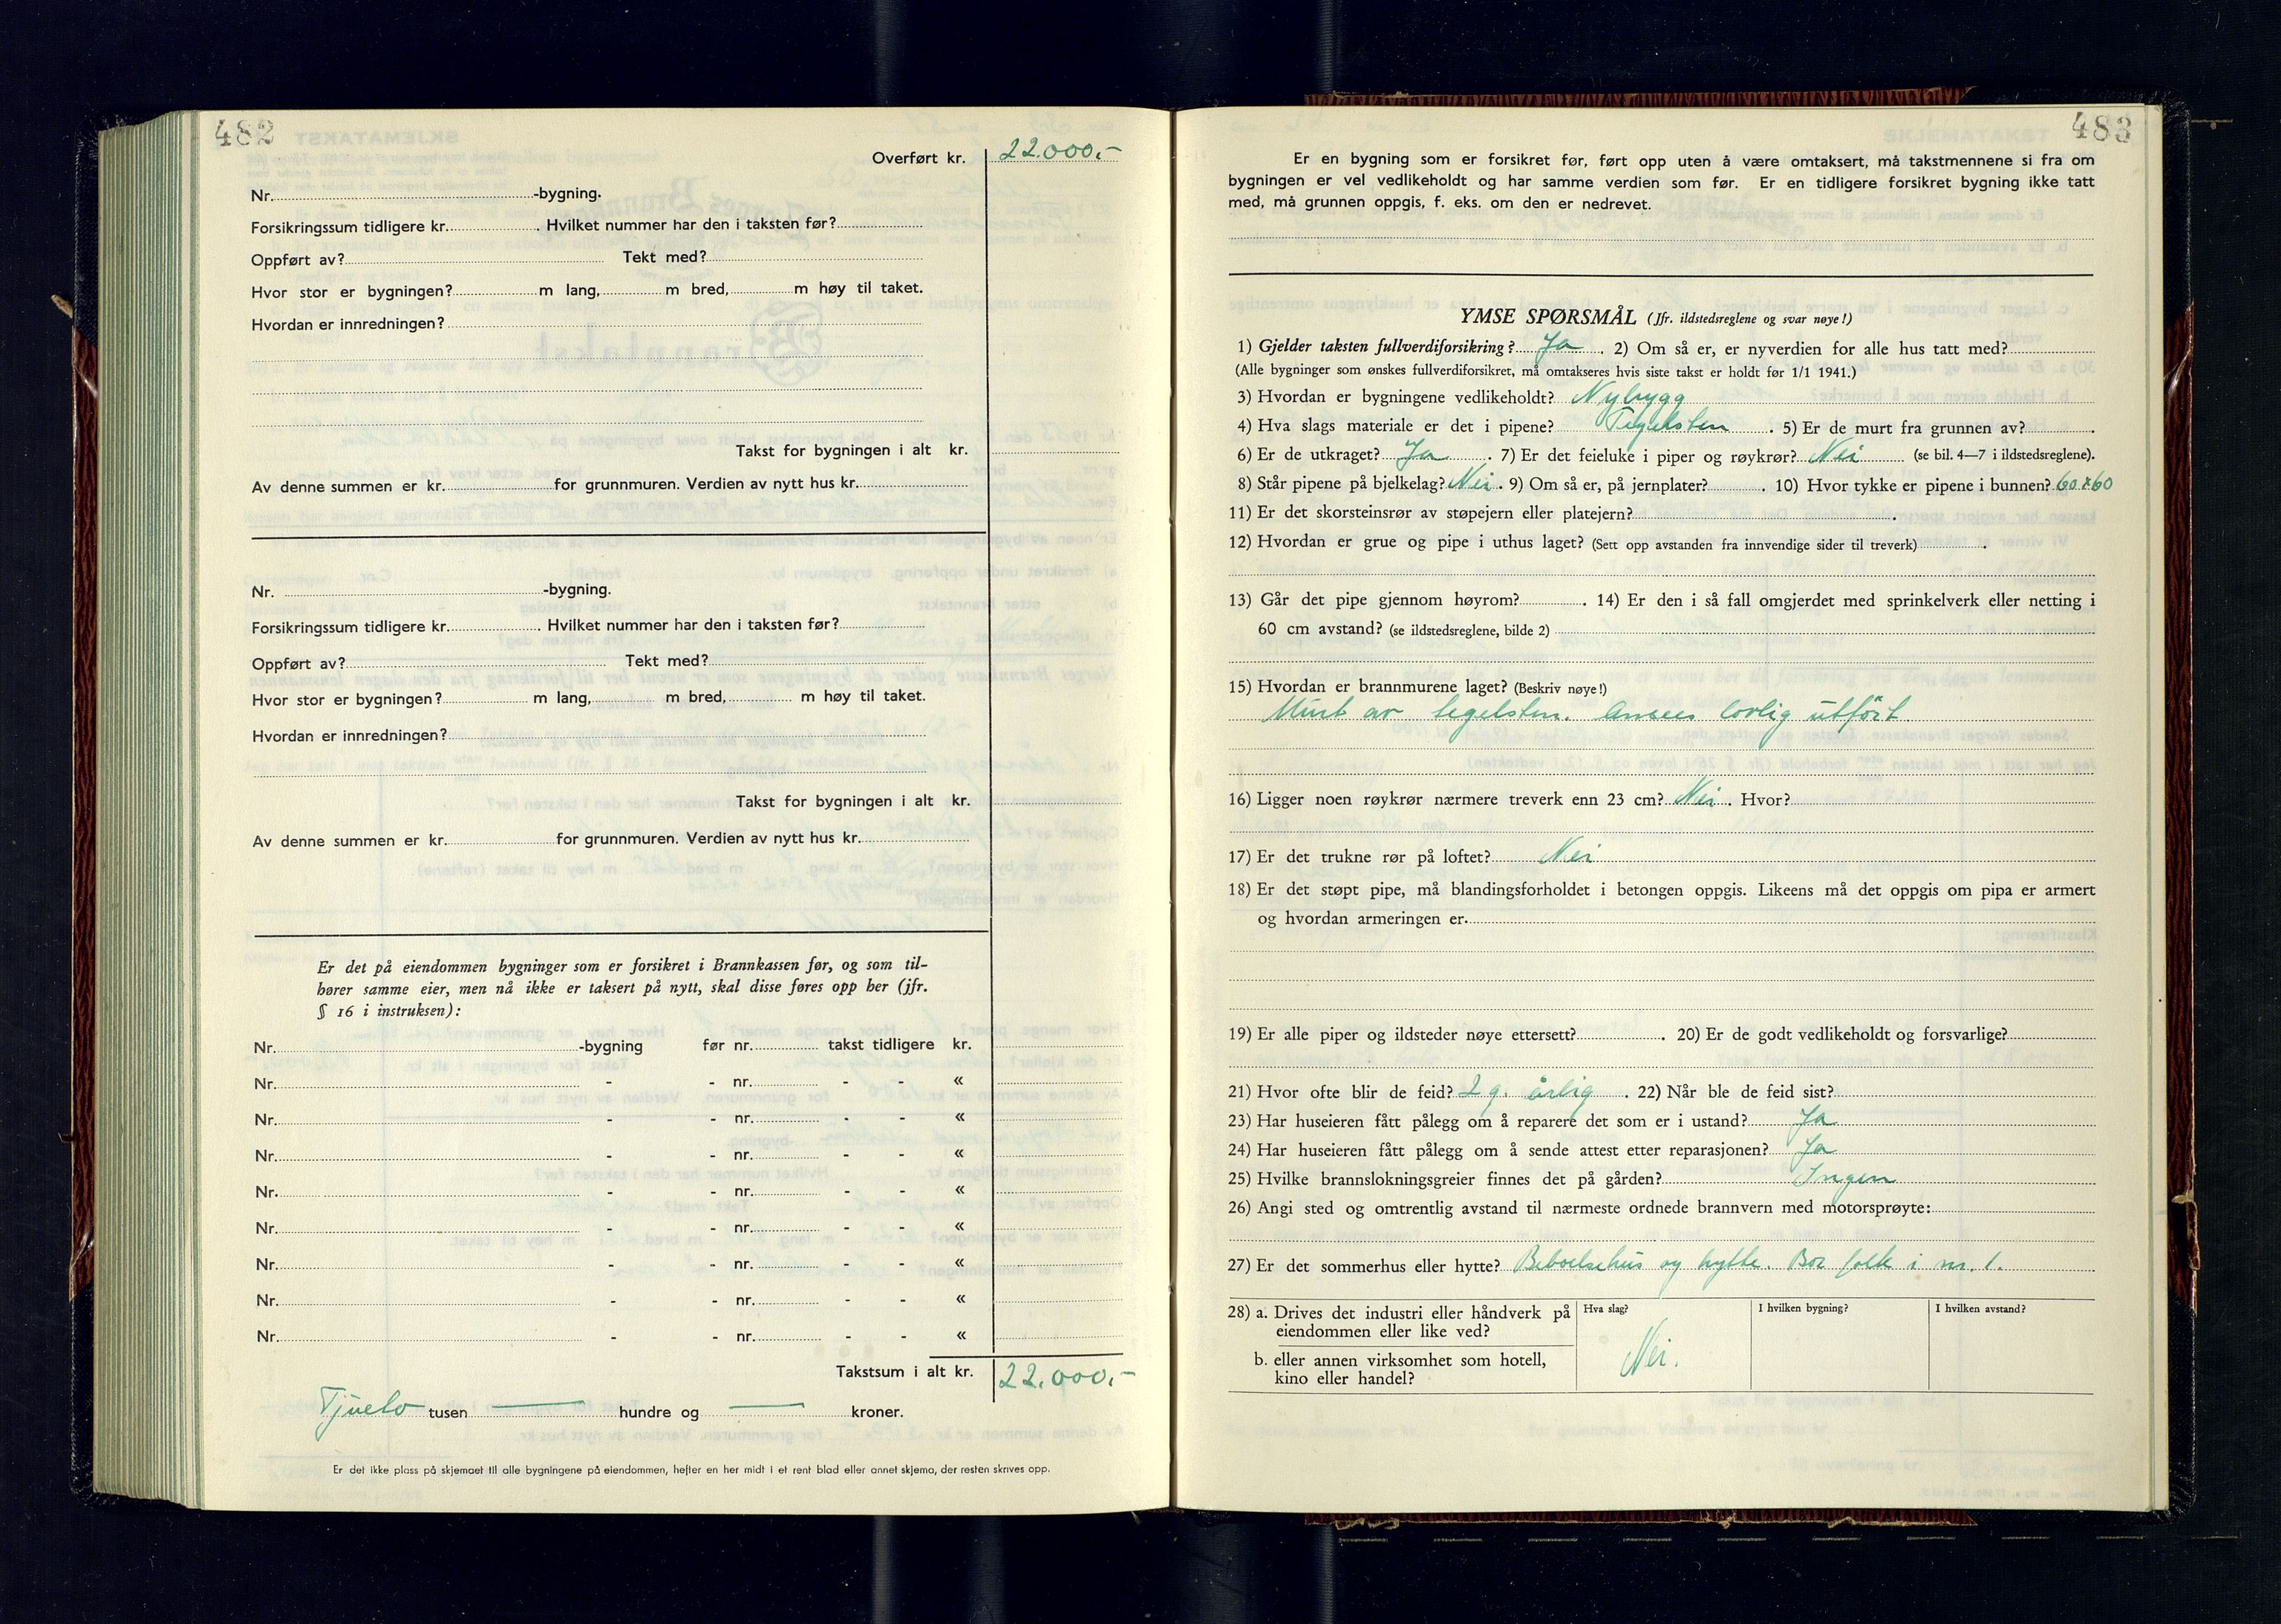 482
Overført kr. 22.000.-
Nr. -bygning.
Forsikringssum tidligere kr. . Hvilket nummer har den i taksten før?
Oppført av? Tekt med?
Hvor stor er bygningen? m lang, m bred, m høy til taket.
Hvordan er innredningen?
Takst for bygningen i alt kr.
Av denne summen er kr. for grunnmuren. Verdien av nytt hus kr.
Nr. -bygning.
Forsikringssum tidligere kr. . Hvilket nummer har den i taksten før?
Oppført av? Tekt med?
Hvor stor er bygningen? m lang, m bred, m høy til taket.
Hvordan er innredningen?
Takst for bygningen i alt kr.
Av denne summen er kr. for grunnmuren. Verdien av nytt hus kr.
Er det på eiendommen bygninger som er forsikret i Brannkassen før, og som til-
hører samme eier, men nå ikke er taksert på nytt, skal disse føres opp her (jfr.
§ 16 i instruksen):
Nr. -bygning før nr. takst tidligere kr.
Nr. - - nr. - - «
Nr. - - nr. - - «
Nr. - - nr. - - «
Nr. - - nr. - - «
Nr. - - nr. - - «
Nr. - - nr. - - «
Nr. - - nr. - - «
Nr. - - nr. - - «
Takstsum i alt kr. 22.000.-
Tjueto tusen — hundre og — kroner.
Er det ikke plass på skjemaet til alle bygningene på eiendommen, hefter en her midt i et rent blad eller annet skjema, der resten skrives opp.
483
Er en bygning som er forsikret før, ført opp uten å være omtaksert, må takstmennene si fra om
bygningen er vel vedlikeholdt og har samme verdien som før. Er en tidligere forsikret bygning ikke tatt
med, må grunnen oppgis, f. eks. om den er nedrevet.
YMSE SPØRSMÅL (Jfr. ildstedsreglene og svar nøye!)
1) Gjelder taksten fullverdiforsikring? Ja . 2) Om så er, er nyverdien for alle hus tatt med?
(Alle bygninger som ønskes fullverdiforsikret, må omtakseres hvis siste takst er holdt før 1/1 1941.)
3) Hvordan er bygningene vedlikeholdt? Nybygg
4) Hva slags materiale er det i pipene? Tegelsten . 5) Er de murt fra grunnen av? .
6) Er de utkraget? Ja . 7) Er det feieluke i piper og røykrør? Nei (se bil. 4—7 i ildstedsreglene).
8) Står pipene på bjelkelag? Nei . 9) Om så er, på jernplater? . 10) Hvor tykke er pipene i bunnen? 60x60
11) Er det skorsteinsrør av støpejern eller platejern? .
12) Hvordan er grue og pipe i uthus laget? (Sett opp avstanden fra innvendige sider til treverk) .
13) Går det pipe gjennom høyrom? . 14) Er den i så fall omgjerdet med sprinkelverk eller netting i
60 cm avstand? (se ildstedsreglene, bilde 2)
15) Hvordan er brannmurene laget? (Beskriv nøye!)
Murt av tegelsten. Ansees lovlig utført
16) Ligger noen røykrør nærmere treverk enn 23 cm? Nei . Hvor?
17) Er det trukne rør på loftet? Nei
18) Er det støpt pipe, må blandingsforholdet i betongen oppgis. Likeens må det oppgis om pipa er armert
og hvordan armeringen er.
19) Er alle piper og ildsteder nøye ettersett? . 20) Er de godt vedlikeholdt og forsvarlige?
21) Hvor ofte blir de feid? 2 g. årlig . 22) Når ble de feid sist?
23) Har huseieren fått pålegg om å reparere det som er i ustand? Ja
24) Har huseieren fått pålegg om å sende attest etter reparasjonen? Ja
25) Hvilke brannslokningsgreier finnes det på gården? Ingen
26) Angi sted og omtrentlig avstand til nærmeste ordnede brannvern med motorsprøyte:
27) Er det sommerhus eller hytte? Beboelsehus og hytte. Bor folk i nr. 1.
28) a. Drives det industri eller håndverk på Hva slag? I hvilken bygning? I hvilken avstand?
eiendommen eller like ved?
b. eller annen virksomhet som hotell, Nei.
kino eller handel?